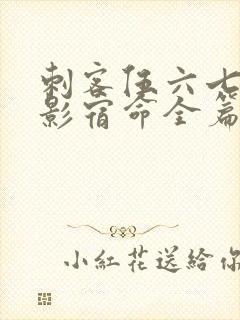 刺客伍六七
影宿命全篇
小紅花送給你